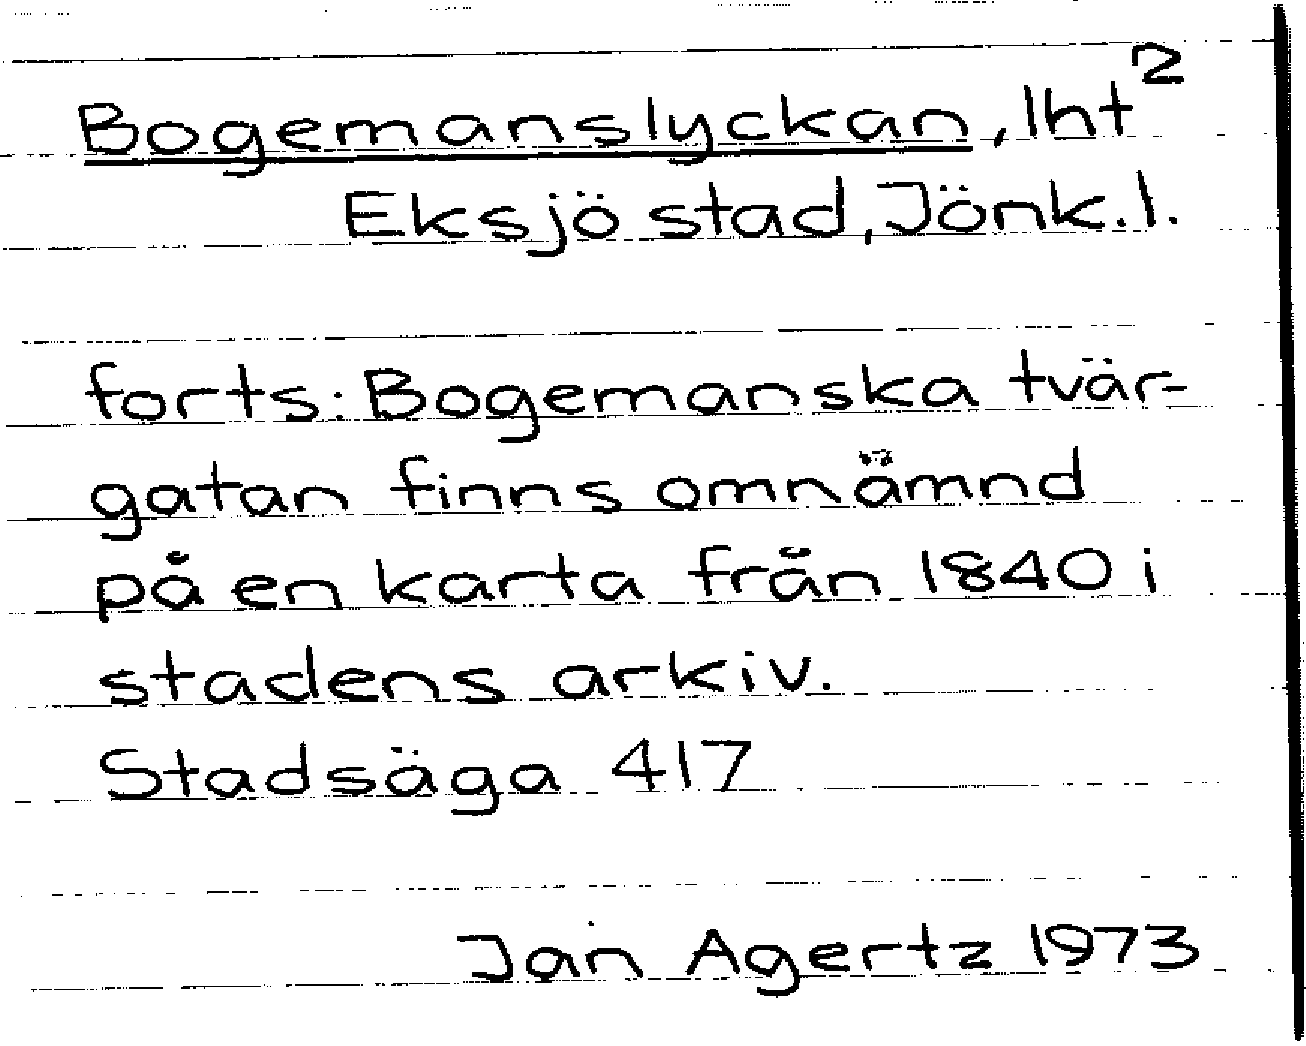 2
Bogemanslyckan, lht
Eksjö stad, Jönk. l.
forts: Bogemanska tvär-
gatan finns omnämnd
på en karta från 1840 i
stadens arkiv.
Stadsäga 417
Jan Agertz 1973